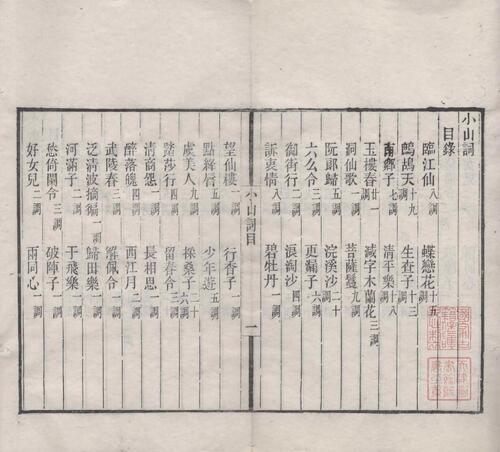 小山詞
目錄
臨江仙 八調 蝶戀花 十五調
鷓鴣天 十九調 生查子 十三調
南鄉子 七調 清平樂 十八調
玉樓春 廿一調 減字木蘭花 三調
洞仙歌 一調 菩薩蠻 九調
阮郎歸 五調 浣溪沙 二十調
六么令 三調 更漏子 六調
御街行 二調 浪淘沙 四調
訴衷情 八調 碧牡丹 一調
小山詞目 一
望仙樓 一調 行香子 一調
點絳唇 五調 少年遊 五調
虞美人 九調 採桑子 二十六調
踏莎行 四調 留春令 三調
清商怨 一調 長相思 一調
醉落魄 四調 西江月 二調
武陵春 三調 解佩令 一調
泛清波摘徧 一調 歸田樂 一調
河滿子 二調 于飛樂 一調
愁倚闌令 三調 破陣子 一調
好女兒 二調 兩同心 一調